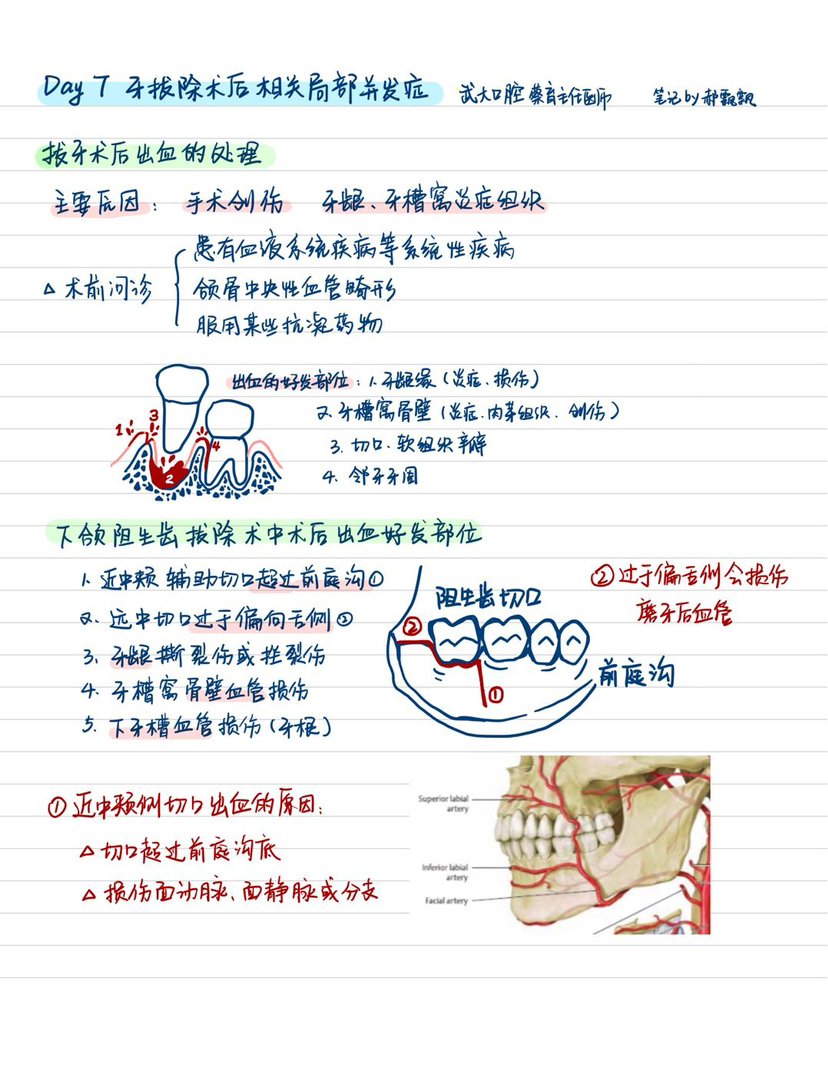 Day 7 牙拔除术后相关局部并发症 武大口腔蔡育主任医师 笔记by郝飘飘
拔牙术后出血的处理
主要原因: 手术创伤 牙龈、牙槽窝炎症组织
△ 术前问诊
患有血液系统疾病等系统性疾病
颌骨中央性血管畸形
服用某些抗凝药物
出血的好发部位: 1. 牙龈缘(炎症、损伤)
2. 牙槽窝骨壁(炎症、肉芽组织、创伤)
3. 切口、软组织瓣
4. 邻牙牙周
1 3 4
2
下颌阻生齿拔除术中术后出血好发部位
1. 近中颊辅助切口超过前庭沟①
2. 远中切口过于偏向舌侧②
3. 牙龈撕裂伤或挫裂伤
4. 牙槽窝骨壁血管损伤
5. 下牙槽血管损伤(牙根)
阻生齿切口
②
①
前庭沟
②过于偏舌侧会损伤
磨牙后血管
①近中颊侧切口出血的原因:
△ 切口超过前庭沟底
△ 损伤面动脉、面静脉或分支
Superior labial
artery
Inferior labial
artery
Facial artery